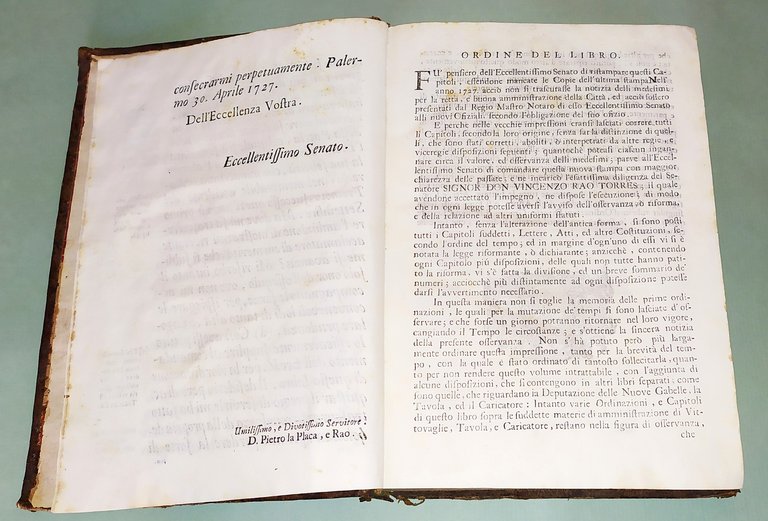 consecrarmi perpetuamente. Paler-
mo 30. Aprile 1727.
Dell'Eccellenza Vostra.
Eccellentissimo Senato.
Umilissimo, e Divotissimo Servitore
D. Pietro la Placa, e Rao.
ORDINE DEL LIBRO.
FU' pensiero dell'Eccellentissimo Senato di ristampare questi Ca-
pitoli, essendone mancate le Copie dell'ultima stampa Nell'
anno 1727. acciò non si trascurasse la notizia delli medesimi
per la retta, e buona amministrazione della Città, ed acciò fussero
presentati dal Regio Mastro Notaro di esso Eccellentissimo Senato
alli nuovi Ofiziali, secondo l'obligazione del suo ofizio.
E perche nelle vecchie impressioni eransi lasciati correre tutti
li Capitoli, secondo la loro origine, senza far la distinzione di quel-
li, che sono stati corretti, aboliti, ò interpretati da altre regie, e
viceregie disposizioni seguenti; quantochè poteasi ciascun ingan-
nare circa il valore, ed osservanza delli medesimi; parve all'Eccel-
lentissimo Senato di comandare questa nuova stampa con maggior
chiarezza delle passate; e ne incaricò l'esattissima diligenza del Se-
natore SIGNOR DON VINCENZO RAO TORRES; il quale
avendone accettato l'impegno, ne dispose l'esecuzione; di modo
che in ogni legge potesse aversi l'avviso dell'osservanza, ò riforma,
e della relazione ad altri uniformi statuti.
Intanto, senza l'alterazione dell'antica forma, si sono posti
tutti i Capitoli suddetti, Lettere, Atti, ed altre Costituzioni, se-
condo l'ordine del tempo; ed in margine d'ogn'uno di essi vi si è
notata la legge riformante, ò dichiarante; anzicchè, contenendo
ogni Capitolo più disposizioni, delle quali non tutte hanno pati-
to la riforma, vi s'è fatta la divisione, ed un breve sommario de'
numeri; acciocchè più distintamente ad ogni disposizione potesse
darsi l'avvertimento necessario.
In questa maniera non si toglie la memoria delle prime ordi-
nazioni, le quali per la mutazione de' tempi si sono lasciate d'os-
servare; e che forse un giorno potranno ritornare nel loro vigore,
cangiando il Tempo le circostanze; e s'ottiene la sincera notizia
della presente osservanza. Non s'hà potuto però più larga-
mente ordinare questa impressione, tanto per la brevità del tem-
po, con la quale è stato ordinato di tantosto sollecitarla, quan-
to per non rendere questo volume intrattabile, con l'aggiunta di
alcune disposizioni, che si contengono in altri libri separati; come
sono quelle, che riguardano la Deputazione delle Nuove Gabelle, la
Tavola, ed il Caricatore: Intanto varie Ordinazioni, e Capitoli
di questo libro sopra le suddette materie di amministrazione di Vit-
tovaglie, Tavola, e Caricatore, restano nella figura di osservanza,
che